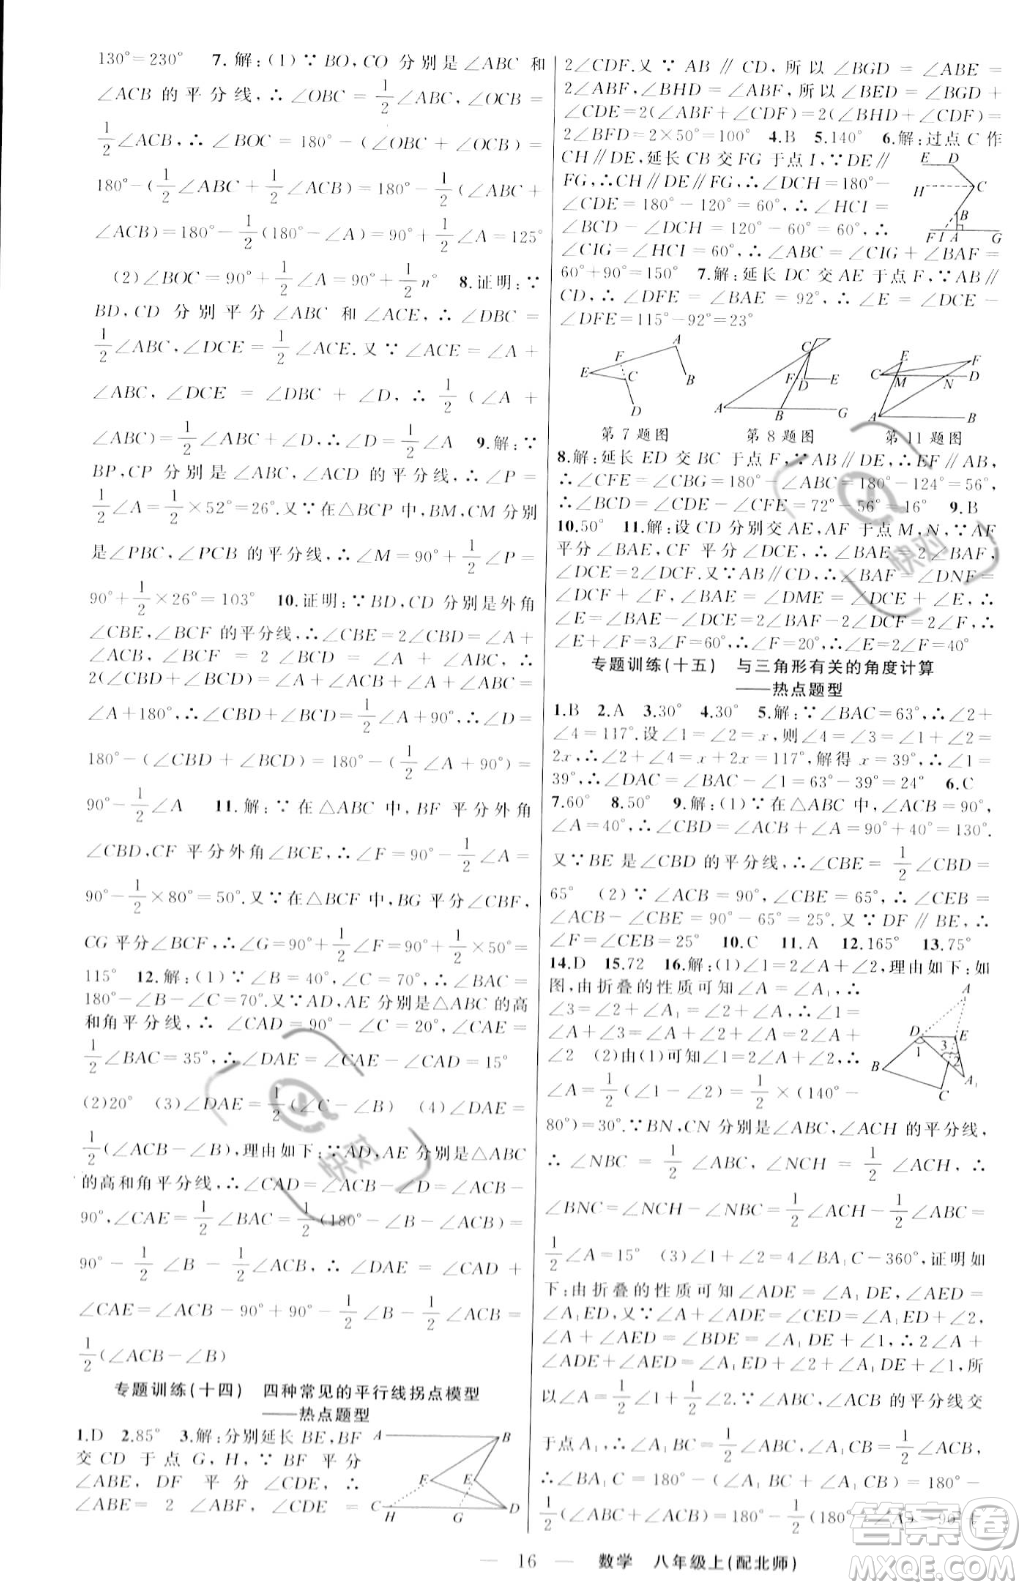 130°=230°  7.解:(1)∵BO,CO 分别是∠ABC 和
∠ACB 的平分线,∴∠OBC=1/2∠ABC,∠OCB=
1/2∠ACB,∴∠BOC=180°-(∠OBC+∠OCB)=
180°-(1/2∠ABC+1/2∠ACB)=180°-1/2(∠ABC+
∠ACB)=180°-1/2(180°-∠A)=90°+1/2∠A=125°
(2)∠BOC=90°+1/2∠A=90°+1/2n°  8.证明:∵
BD,CD 分别平分∠ABC 和∠ACE,∴∠DBC=
1/2∠ABC,∠DCE=1/2∠ACE.又∵∠ACE=∠A+
∠ABC,∠DCE=∠D+∠DBC,∴∠D+1/2∠ABC=1/2(∠A+
∠ABC)=1/2∠A+1/2∠ABC,∴∠D=1/2∠A  9.解:∵
BP,CP 分别是∠ABC,∠ACD 的平分线,∴∠P=
1/2∠A=1/2×52°=26°.又∵在△BCP中,BM,CM 分别
是∠PBC,∠PCB 的平分线,∴∠M=90°+1/2∠P=
90°+1/2×26°=103°  10.证明:∵BD,CD 分别是外角
∠CBE,∠BCF 的平分线,∴∠CBE=2∠CBD=∠A+
∠ACB,∠BCF=2∠BCD=∠A+∠ABC,∴
2(∠CBD+∠BCD)=∠A+∠ACB+∠A+∠ABC=
∠A+180°,∴∠CBD+∠BCD=1/2∠A+90°,∴∠BDC=
180°-(∠CBD+∠BCD)=180°-(1/2∠A+90°)=
90°-1/2∠A  11.解:∵在△ABC 中,BF 平分外角
∠CBD,CF 平分外角∠BCE,∴∠F=90°-1/2∠A=
90°-1/2×80°=50°.又∵在△BCF 中,BG平分∠CBF,
CG 平分∠BCF,∴∠G=90°+1/2∠F=90°+1/2×50°=
115°  12.解:(1)∵∠B=40°,∠C=70°,∴∠BAC=
180°-∠B-∠C=70°.又∵AD,AE 分别是△ABC 的高
和角平分线,∴∠CAD=90°-∠C=20°,∠CAE=
1/2∠BAC=35°,∴∠DAE=∠CAE-∠CAD=15°
(2)20°  (3)∠DAE=1/2(∠C-∠B)  (4)∠DAE=
1/2(∠ACB-∠B),理由如下:∵AD,AE 分别是△ABC
的高和角平分线,∴∠CAD=∠ACD-∠ADC=∠ACB-
90°,∠CAE=1/2∠BAC=1/2(180°-∠B-∠ACB)=
90°-1/2∠B-1/2∠ACB,∴∠DAE=∠CAD+
∠CAE=∠ACB-90°+90°-1/2∠B-1/2∠ACB=
1/2(∠ACB-∠B)
专题训练(十四)  四种常见的平行线拐点模型
——热点题型
1.D  2.85°  3.解:分别延长BE,BF
交 CD 于点 G,H,∵BF 平分
∠ABE, DF 平分∠CDE, ∴
∠ABE=2∠ABF,∠CDE=
A B E F C H G D
2∠CDF.又∵AB∥CD,所以∠BGD=∠ABE=
2∠ABF,∠BHD=∠ABF,∴∠BED=∠BGD+
∠CDE=2(∠ABF+∠CDF)=2(∠BHD+∠CDF)=
2∠BFD=2×50°=100°  4.B  5.140°  6.解:过点C作
CH∥DE,延长 CB 交 FG 于点 I,∵DE∥
FG,∴CH∥FG,∴∠DCH=180°-
∠CDE=180°-120°=60°,∴∠HCI=
∠BCD-∠DCH=120°-60°=60°,∴
∠CIG=∠HCI=60°,∴∠ABC=∠CIG+∠BAF=
60°+90°=150°  7.解:延长 DC 交 AE 于点 F,∵AB∥
CD,∴∠DFE=∠BAE=92°,∴∠E=∠DCE-
∠DFE=115°-92°=23°
E D H C B F I A G
A F E C B D
第 7 题图
C F D E A B G
第 8 题图
E F C M N D A B
第 11 题图
8.解:延长 ED 交 BC 于点 F,∵AB∥DE,∴∠CFE=∠CBG,
∴∠CFE=∠CBG=180°-∠ABC=180°-124°=56°,
∴∠BCD=∠CDE-∠CFE=72°-56°=16°  9.B
10.50°  11.解:设 CD 分别交 AE,AF 于点 M,N,∵AF
平分∠BAE,CF 平分∠DCE,∴∠BAE=2∠BAF,
∠DCE=2∠DCF.又∵AB∥CD,∴∠BAF=∠DNF=
∴∠E+∠F=3∠F=60°,∴∠F=20°,∴∠E=2∠F=40°
专题训练(十五)  与三角形有关的角度计算
——热点题型
1.B  2.A  3.30°  4.30°  5.解:∵∠BAC=63°,∴∠2+
∠4=117°.设∠1=∠2=x,则∠4=∠3=∠1+∠2=
2x,∴∠2+∠4=x+2x=117°,解得 x=39°,∴∠1=
39°,∴∠DAC=∠BAC-∠1=63°-39°=24°  6.C
7.60°  8.50°  9.解:(1)∵在△ABC中,∠ACB=90°,
∠A=40°,∴∠CBD=∠ACB+∠A=90°+40°=130°.
又∵BE 是∠CBD 的平分线,∴∠CBE=1/2∠CBD=
65°  (2)∵∠ACB=90°,∠CBE=65°,∴∠CEB=
∠ACB-∠CBE=90°-65°=25°.又∵DF∥BE,∴
∠F=∠CEB=25°  10.C  11.A  12.165°  13.75°
14.D  15.72  16.解:(1)∠1=2∠A+∠2,理由如下:如
图,由折叠的性质可知∠A=∠A₁,∴∠1=
∠A+∠3=∠A+∠A₁+∠2=2∠A+
∠2  (2)由(1)可知∠1=2∠A+∠2,∴
∠A=1/2(∠1-∠2)=1/2×(140°-
80°)=30°.∵BN,CN 分别是∠ABC,∠ACH 的平分线,
∴∠NBC=1/2∠ABC,∠NCH=1/2∠ACH,∴
∠BNC=∠NCH-∠NBC=1/2∠ACH-1/2∠ABC=
1/2∠A=15°  (3)∠1+∠2=4∠BA₁C-360°,证明如
下:由折叠的性质可知∠ADE=∠A₁DE,∠AED=
A D E 1 3 2 B C A₁
1/2(∠ABC+∠ACB)=180°-
1/2(180°-∠A)=90°+
— 16 —  数学  八年级上(配北师)
快对
快对
答案圈
MXQE.COM